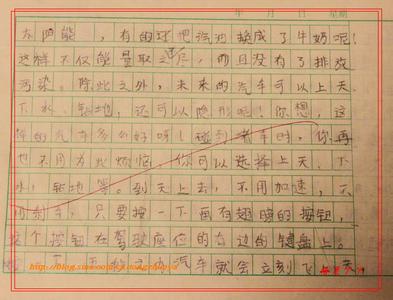 年 月 日 星期
太阳能，有的还把汽油换成了牛奶呢！
这样不仅能量取之不尽，而且没有了排放
污染。除此之外，未来的汽车可以上天、
下水、钻地，还可以隐形呢！你想，这
样的汽车多么好呀！碰到堵车时，你再
也不用为此烦恼。你可以选择上天、下
水、钻地等。到天上去，不用加速，不
用，只要按一下画有翅膀的按钮，
这个按钮在驾驶座位的右边的键盘上。
汽车就会立刻飞